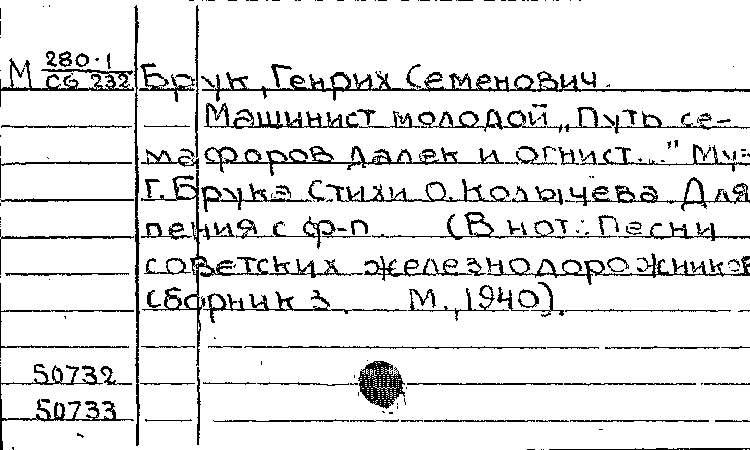 М 280-1 / Сб 232 Брук, Генрих Семенович.
Машинист молодой „Путь се-
мафоров далек и огнист..." Муз
Г. Брука Стихи О. Колычева Для
пения с ф-п. (В нот.: Песни
советских железнодорожников
Сборник 3. М., 1940).
50732
50733